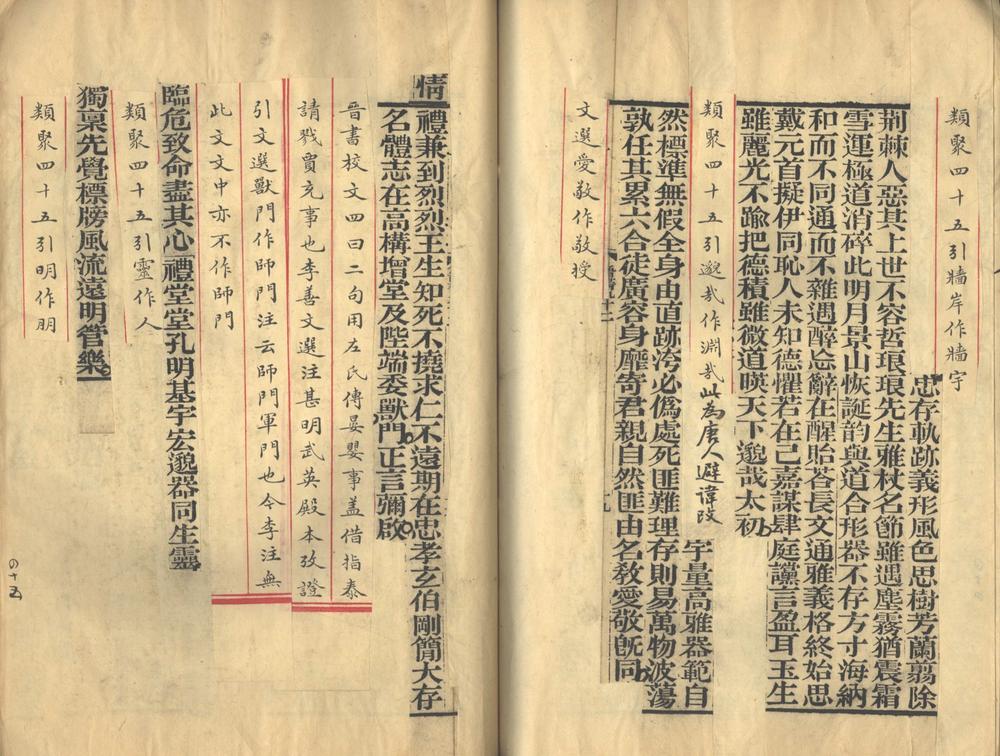 類聚四十五引牆岸作牆宇
忠存軌跡義形風色思樹芳蘭翦除
荆棘人惡其上世不容哲琅琅先生雅杖名節雖遇塵霧猶震霜
雪運極道消碎此明月景山恢誕韵與道合形器不存方寸海納
和而不同通而不雜遇醉忘辭在醒貽荅長文通雅義格終始思
戴元首擬伊同恥人未知德懼若在己嘉謀肆庭讜言盈耳玉生
雖麗光不踰把德積雖微道暎天下邈哉太初
類聚四十五引邈哉作淵哉此為唐人避諱改
宇量高雅器範自
然標準無假全身由直跡洿必僞處死匪難理存則易萬物波蕩
孰任其累六合徒廣容身靡寄君親自然匪由名敎愛敬旣同
文選愛敬作敬授
情
禮兼到烈烈王生知死不撓求仁不遠期在忠孝玄伯剛簡大存
名體志在高構增堂及陛端委獸門正言彌啟
晉書校文四曰二句用左氏傳晏嬰事盖借指泰
請戮賈充事也李善文選注甚明武英殿本攷證
引文選獸門作師門注云師門軍門也今李注無
此文文中亦不作師門
臨危致命盡其心禮堂堂孔明基宇宏邈器同生靈
類聚四十五引靈作人
獨稟先覺標牓風流遠明管樂
類聚四十五引明作朋
四十五